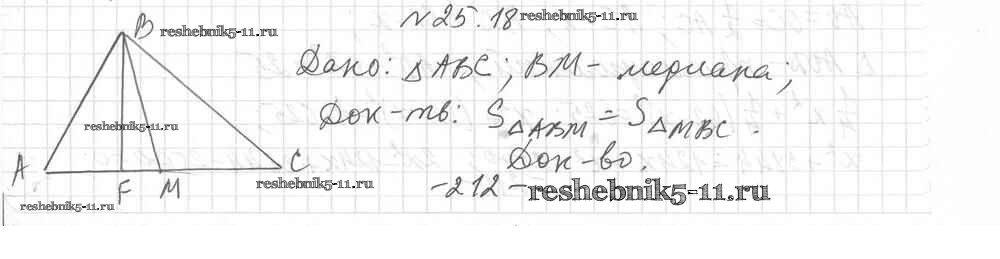 B reshebnik5-11.ru
N 25.18 reshebnik5-11.ru
Дано: △ABC; BM - медиана;
reshebnik5-11.ru
Док-ть: S△ABM = S△MBC.
Док-во.
A C
reshebnik5-11.ru
F M
-212- reshebnik5-11.ru
reshebnik5-11.ru